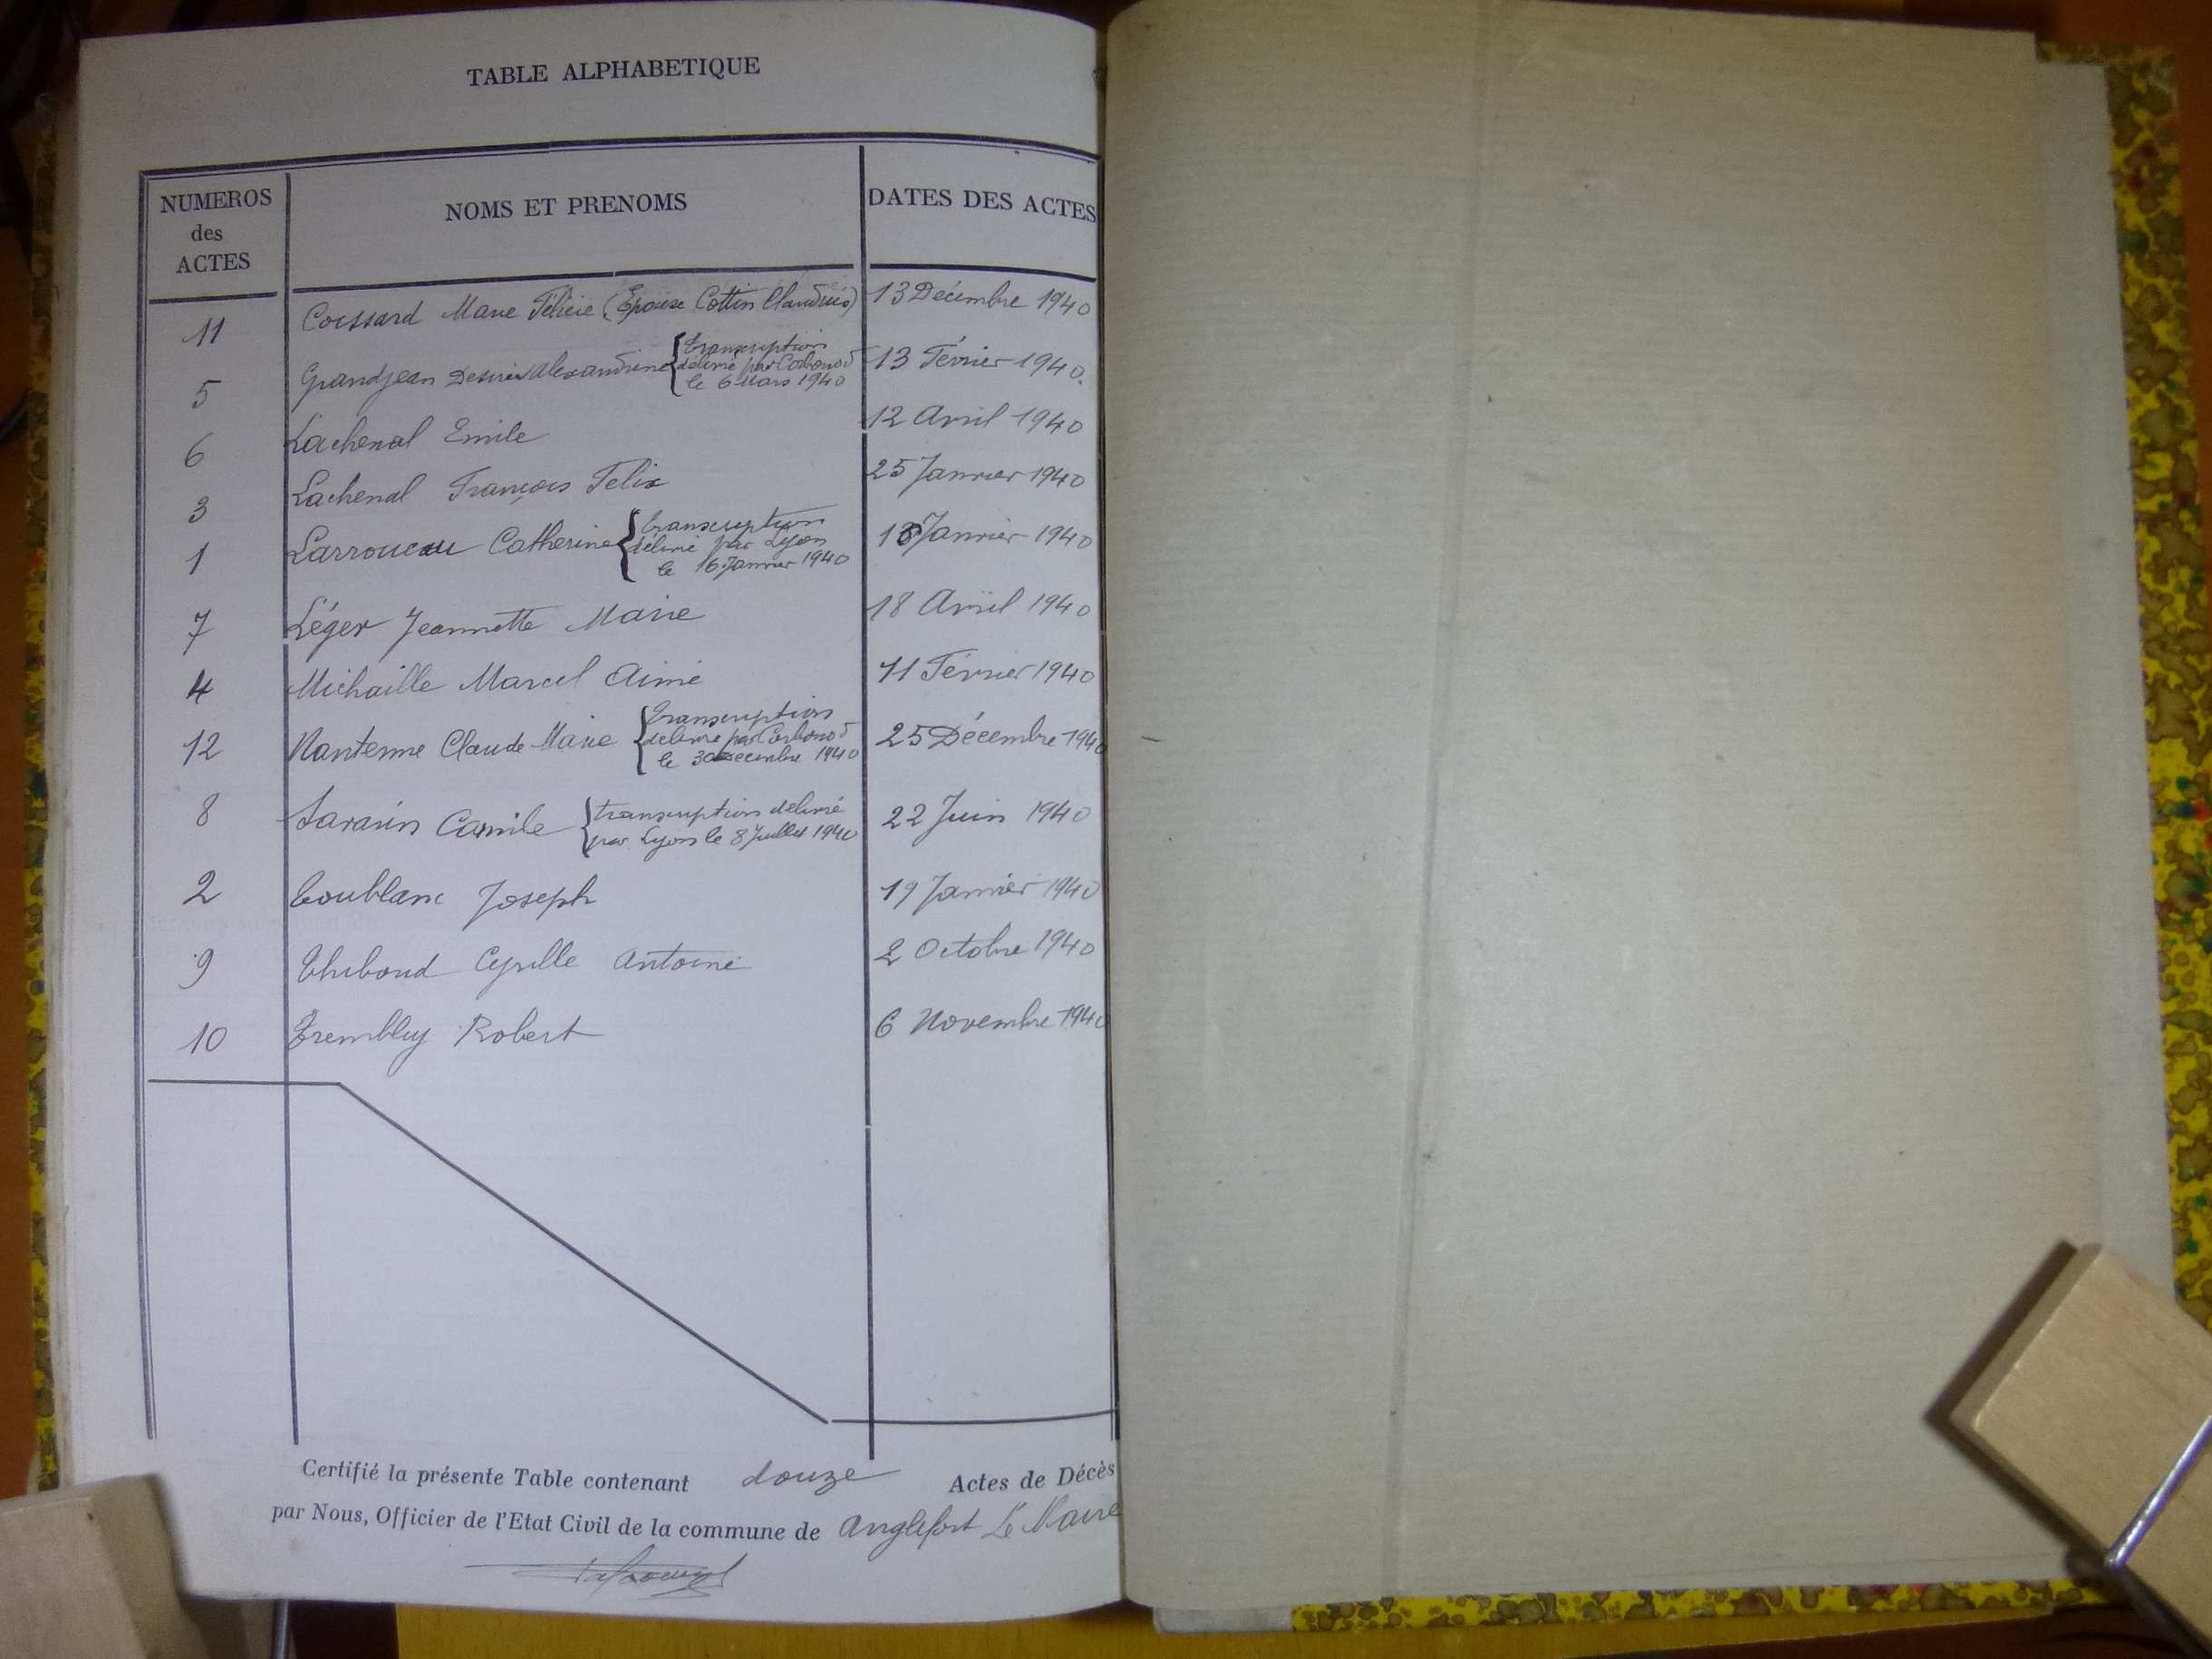 TABLE ALPHABETIQUE
NUMEROS
des
ACTES
NOMS ET PRENOMS
DATES DES ACTES
11 Coussard Marie Félicie (Epouse Cottin Claudius) 13 Décembre 1940
5 Grandjean Desirée Alexandrine { transcription
délivré par Corbonod
le 6 Mars 1940 13 Février 1940.
6 Lachenal Emile 12 Avril 1940
3 Lachenal François Felix 25 Janvier 1940
1 Larroucau Catherine { transcription
délivré par Lyon
le 16 Janvier 1940 Janvier 1940
7 Léger Jeannette Marie 18 Avril 1940
4 Michaille Marcel Aimé 11 Février 1940
12 Nanterme Claude Marie { transcription
délivré par Corbonod
le 30 Decembre 1940 25 Décembre 1940
8 Sarasin Camile { transcription delivré
par Lyon le 8 Juillet 1940 22 Juin 1940
2 Toublanc Joseph 19 Janvier 1940
9 Thiboud Cyrille Antoine 2 Octobre 1940
10 Trembley Robert 6 Novembre 1940
Certifié la présente Table contenant douze Actes de Décès
par Nous, Officier de l'Etat Civil de la commune de Anglefort Le Maire